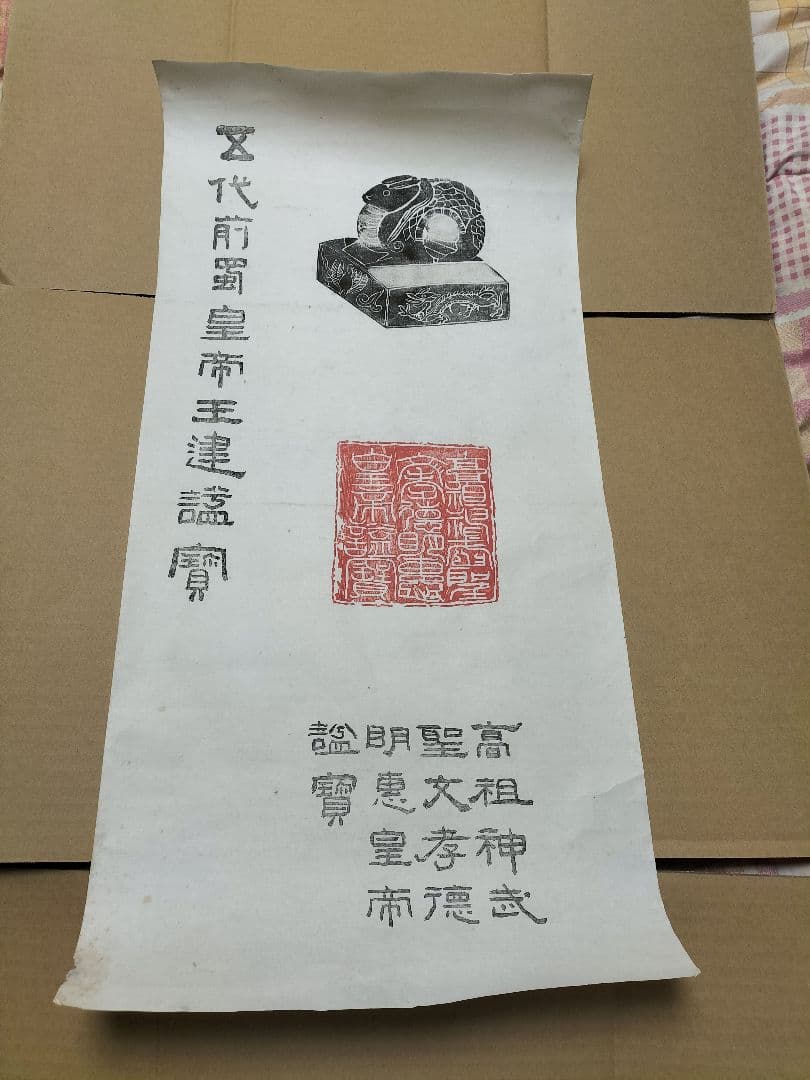 五代前蜀皇帝王建謚寶
高祖神武聖
文孝德明惠
皇帝謚寶
高祖神武
聖文孝德
明惠皇帝
謚寶